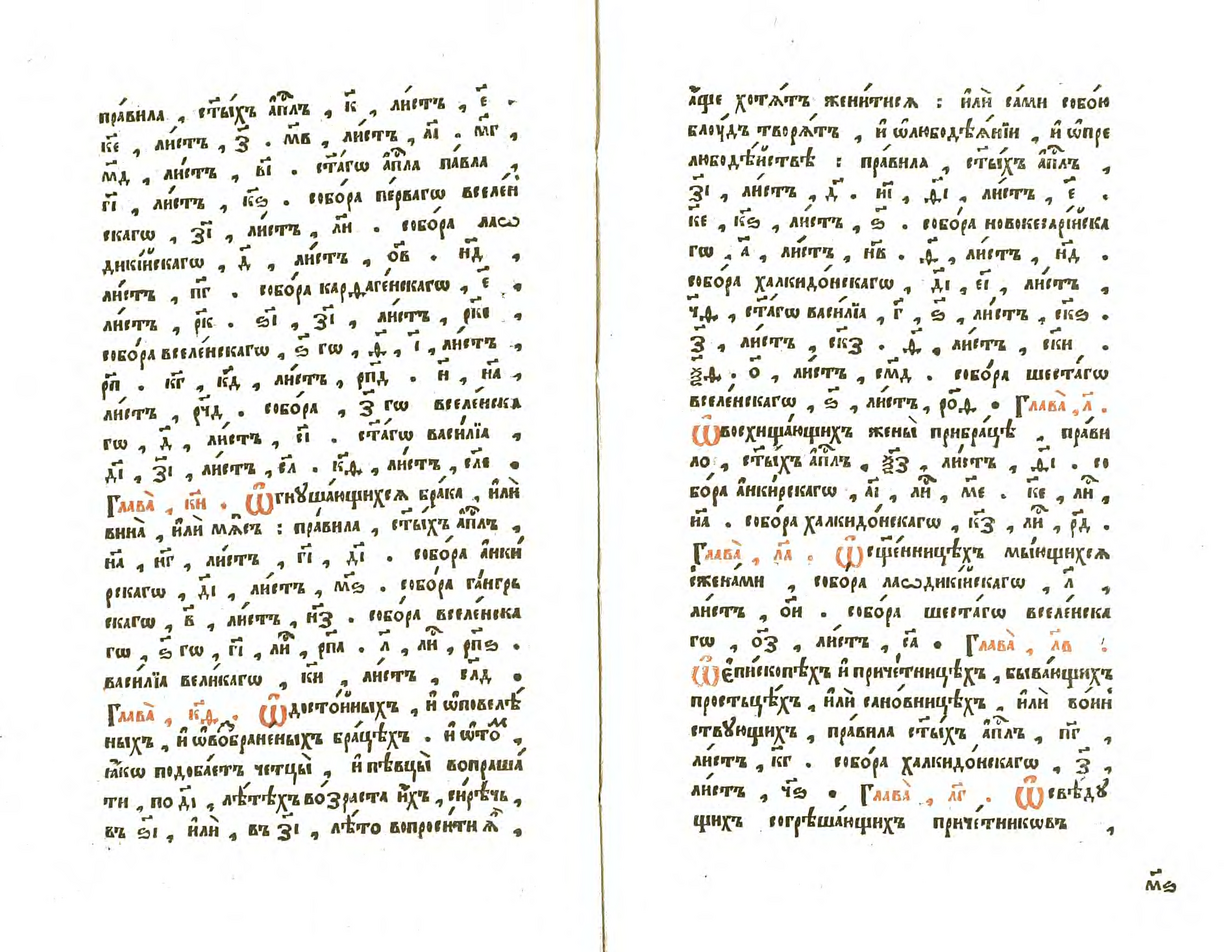 пра́вила , ст҃ы́хъ а҆п҃лъ , к҃ , ли́стъ , є҃ .
к҃є , ли́стъ , з҃ . м҃в , ли́стъ , а҃і . м҃г ,
м҃д , ли́стъ , в҃і . ст҃а́гѡ а҆п҃ла па́вла ,
г҃і , ли́стъ , к҃ѕ . собо́ра пе́рвагѡ вселе́н
скагѡ , з҃і , ли́стъ , л҃и . собо́ра лаѡ
дикі́йскагѡ , д҃ , ли́стъ , о҃в . н҃д ,
ли́стъ , п҃г . собо́ра карѳаге́нскагѡ , є҃ ,
ли́стъ , р҃к . ѕ҃і , з҃і , ли́стъ , р҃кє ,
собо́ра вселе́нскагѡ , ѕ҃ гѡ , ѳ҃ , і҃ , ли́стъ ,
р҃п . к҃г , к҃д , ли́стъ , р҃пд . н҃ , н҃а ,
ли́стъ , р҃чд . собо́ра , з҃ гѡ вселе́нска
гѡ , д҃ , ли́стъ , є҃і . ст҃а́гѡ васи́лїа ,
д҃і , з҃і , ли́стъ , с҃л . к҃ѳ , ли́стъ , с҃лє .
Глава̀ , к҃и . Ѿгнꙋша́ющихсѧ бра́ка , и҆лѝ
вина̀ , и҆лѝ мѧ́съ : пра́вила , ст҃ы́хъ а҆п҃лъ ,
н҃а , н҃г , ли́стъ , г҃і , д҃і . собо́ра а҆нки́
рскагѡ , д҃і , ли́стъ , м҃ѕ . собо́ра га́нгрь
скагѡ , в҃ , ли́стъ , н҃з . собо́ра вселе́нска
гѡ , ѕ҃ гѡ , г҃і , ли́ , р҃па . л҃ , ли́ , р҃пѕ .
васи́лїа вели́кагѡ , к҃и , ли́стъ , с҃лд .
Глава̀ , к҃ѳ . Ѿдосто́йныхъ , и҆ ѡ҆повелѣ́
ныхъ , и҆ ѡ҆возбране́ныхъ бра́цѣхъ . и҆ ѡ҆то́м ,
ꙗ҆́кѡ подоба́етъ четцы̀ , и҆ пѣвцы̀ вопраша́
ти , по д҃і , лѣ́тѣхъ во́зраста и҆́хъ , си́рѣчь ,
въ ѕ҃і , и҆лѝ , въ з҃і , лѣ́то вопроси́ти ѧ҆̀ ,
а҆́ще хотѧ́тъ жени́тисѧ : и҆лѝ са́ми собо́ю
блоу́дъ творѧ́тъ , и҆ ѡ҆любодѣѧ́нїи , и҆ ѡ҆пре
любодѣ́йствѣ : пра́вила , ст҃ы́хъ а҆п҃лъ ,
з҃і , ли́стъ , д҃ . и҃і , ѳ҃і , ли́стъ , є҃ .
к҃є , к҃ѕ , ли́стъ , ѕ҃ . собо́ра новокесарі́йска
гѡ , а҃ , ли́стъ , н҃в . ѳ҃ , ли́стъ , н҃д .
собо́ра халкидо́нскагѡ , д҃і , є҃і , ли́стъ ,
ч҃ѳ , ст҃а́гѡ васи́лїа , г҃ , ѕ҃ , ли́стъ , с҃кѕ .
з҃ , ли́стъ , с҃кз . ѳ҃ , ли́стъ , с҃ки .
ѯ҃ѳ . о҃ , ли́стъ , с҃мд . собо́ра шеста́гѡ
вселе́нскагѡ , ѕ҃ , ли́стъ , р҃оѳ . Глава̀ , л҃ .
Ѿвосхища́ющихъ жены̀ прибра́цѣ , пра́ви
ло , ст҃ы́хъ а҆п҃лъ , ѯ҃з , ли́стъ , ѳ҃і . со
бо́ра а҆нки́рскагѡ , а҃і , ли́ , м҃є . к҃є , ли́ ,
н҃а . собо́ра халкидо́нскагѡ , к҃з , ли́ , р҃д .
Глава̀ , л҃а . Ѿсщ҃е́нницѣхъ мы́ющихсѧ
сжена́ми , собо́ра лаѡдикі́йскагѡ , л҃ ,
ли́стъ , о҃и . собо́ра шеста́гѡ вселе́нска
гѡ , о҃з , ли́стъ , с҃а . Глава̀ , л҃в .
Ѿє҆пи́скопѣхъ и҆ приче́тницѣхъ , быва́ющихъ
простьцѣ́хъ , и҆лѝ сано́вницѣхъ , и҆лѝ во́ин
ствꙋющихъ , пра́вила ст҃ы́хъ а҆п҃лъ , п҃г ,
ли́стъ , к҃г . собо́ра халкидо́нскагѡ , з҃ ,
ли́стъ , ч҃ѕ . Глава̀ , л҃г . Ѿсвѣ́дꙋ
щихъ согрѣша́ющихъ приче́тникѡвъ ,
м҃ѕ